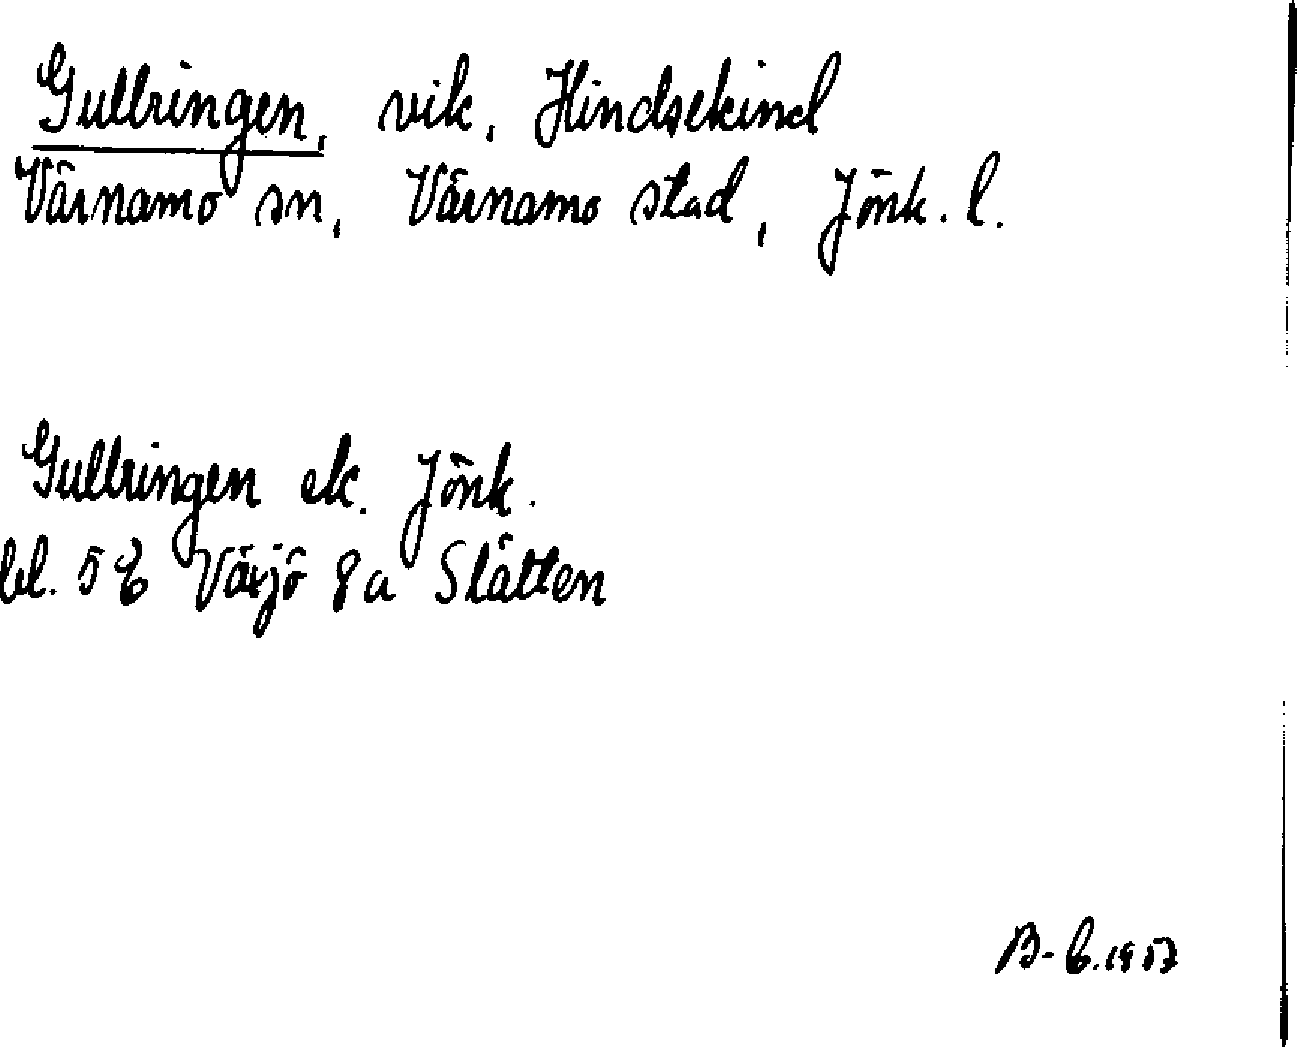 Gullringen, vik, Hindsekind
Värnamo sn, Värnamo stad, Jönk. l.
Gullringen ek. Jönk.
bl. 5 E Växjö 8a Slätten
B-b. 1957